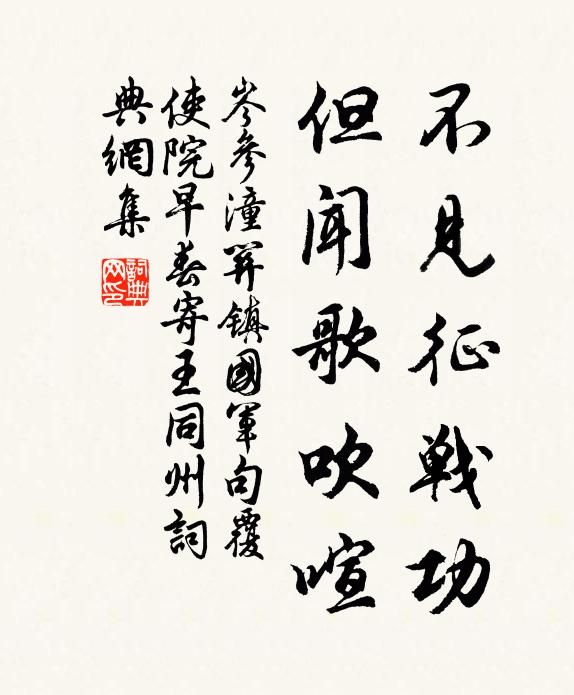 不见征戦功
但闻歌吹喧
岑參潼關鎮國軍句覆
使院早春寄王同州詞
典網集
詞典网印